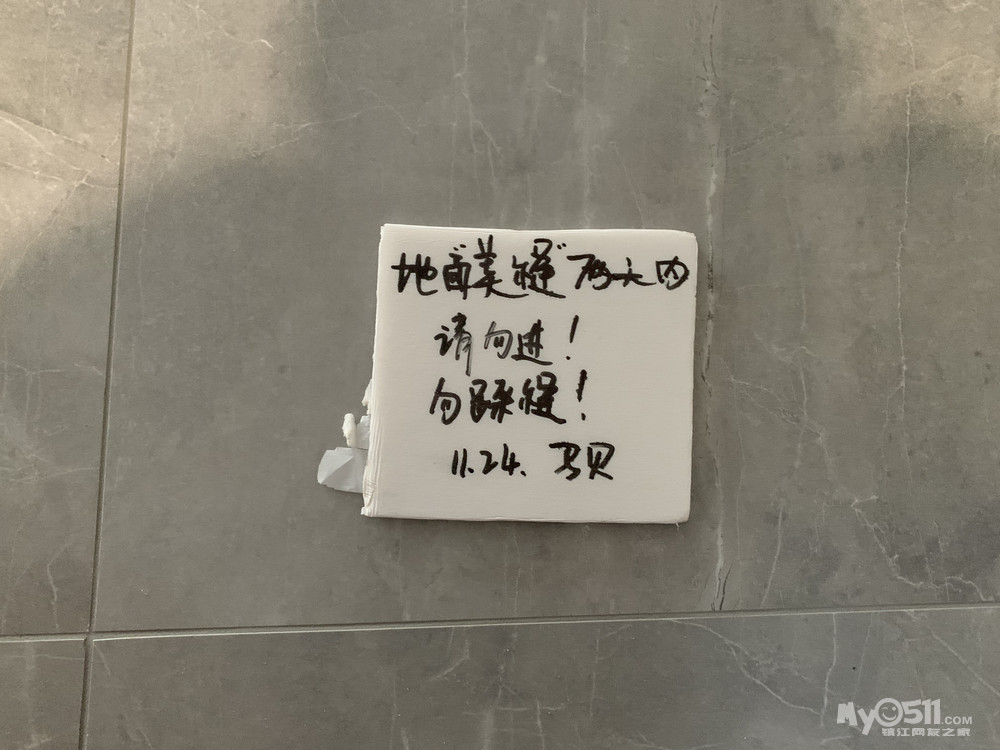 地面美缝"两天内
请勿进！
勿踩缝！
11.24. 马贝
My0511.COM
镇江网友之家